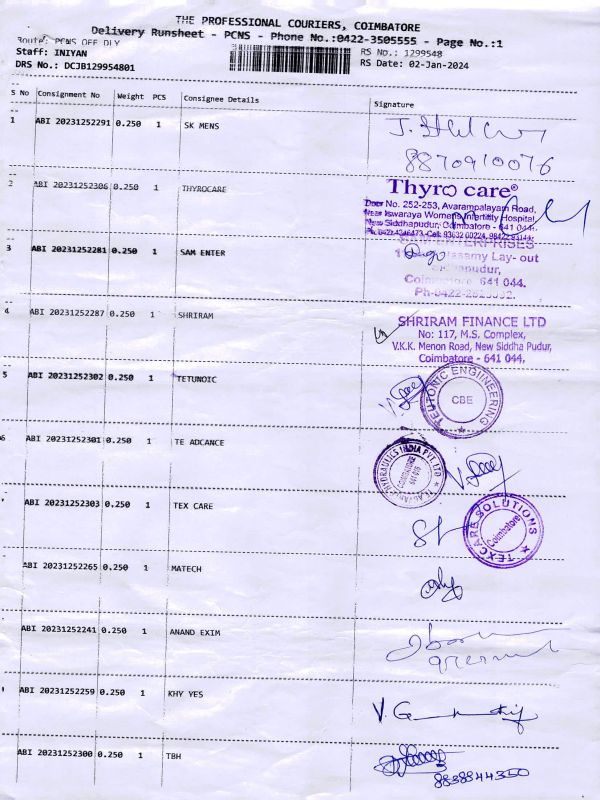 THE PROFESSIONAL COURIERS, COIMBATORE
Delivery Runsheet - PCNS - Phone No.:0422-3505555 - Page No.:1
Route: PCNS OFF DLY
Staff: INIYAN
RS No.: 1299548
DRS No.: DCJB129954801
RS Date: 02-Jan-2024
S No Consignment No Weight PCS Consignee Details Signature
1 ABI 20231252291 0.250 1 SK MENS
8870910076
2 ABI 20231252306 0.250 1 THYROCARE
Thyro care®
Door No. 252-253, Avarampalayam Road,
Near Iswaraya Womens Infertility Hospital
New Siddhapudur, Coimbatore - 641 044.
3 ABI 20231252281 0.250 1 SAM ENTER
ENTERPRISES
Lay- out
Coimbatore 641 044.
4 ABI 20231252287 0.250 1 SHRIRAM
SHRIRAM FINANCE LTD
No: 117, M.S. Complex,
V.K.K. Menon Road, New Siddha Pudur,
Coimbatore - 641 044,
5 ABI 20231252302 0.250 1 TETUNOIC
TEUTONIC ENGINEERING
CBE
6 ABI 20231252301 0.250 1 TE ADCANCE
HYDRAULICS INDIA PVT LTD
ABI 20231252303 0.250 1 TEX CARE
TEXCARE SOLUTIONS
Coimbatore
ABI 20231252265 0.250 1 MATECH
ABI 20231252241 0.250 1 ANAND EXIM
ABI 20231252259 0.250 1 KHY YES
ABI 20231252300 0.250 1 TBH
8838844350